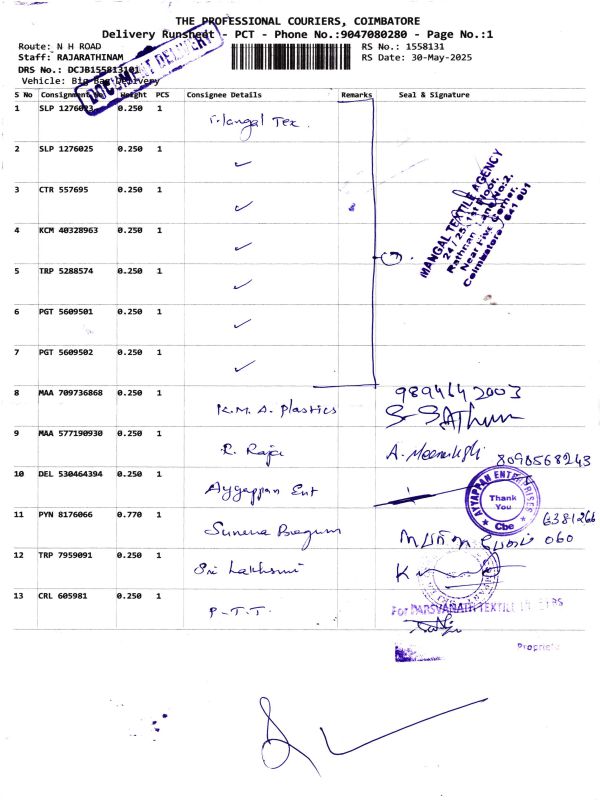 THE PROFESSIONAL COURIERS, COIMBATORE
Delivery Runsheet - PCT - Phone No.:9047080280 - Page No.:1
Route: N H ROAD
RS No.: 1558131
Staff: RAJARATHINAM
RS Date: 30-May-2025
DRS No.: DCJB155813101
Vehicle: Big Bag Delivery
DOCUMENT DELIVERY
S No Consignment No Weight PCS Consignee Details Remarks Seal & Signature
1 SLP 1276023 0.250 1 Mangal Tex.
2 SLP 1276025 0.250 1 ✓
3 CTR 557695 0.250 1 ✓
4 KCM 40328963 0.250 1 ✓
5 TRP 5288574 0.250 1 ✓
6 PGT 5609501 0.250 1 ✓
7 PGT 5609502 0.250 1 ✓
7
MANGAL TEXTILE AGENCY
24 / 25, 1st Floor,
Rathnan Lane No:2,
Near Five Corner,
Coimbatore - 641 001
8 MAA 709736868 0.250 1 K.M.A. Plastics 9894642003
9 MAA 577190930 0.250 1 R. Raja A. Meenakshi 8098568243
10 DEL 530464394 0.250 1 Ayyappan Ent
AYYAPPAN ENTERPRISES
Thank
You
Cbe
11 PYN 8176066 0.770 1 Sunena Beegum 6381266
060
12 TRP 7959091 0.250 1 Sri Lakhsmi
13 CRL 605981 0.250 1 P.T.T.
For PARSVANATH TEXTILE
Propriet